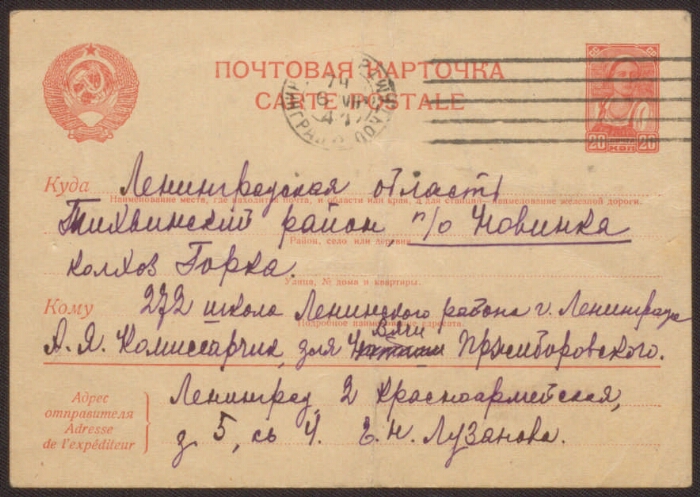 ПОЧТОВАЯ КАРТОЧКА
CARTE POSTALE
20 20
КОП
Куда Ленинградская область
Наименование места, где находится почта, и области или края, а для станций—наименование железной дороги.
Тихвинский район, п/о Новинка
Район, село или деревня
колхоз Горка.
Улица, № дома и квартиры.
Кому 272 школа Ленинского района г. Ленинграда
Подробное наименование адресата.
А. Я. Комиссарчик, для Вали Пржиборовского.
Адрес отправителя
Adresse de l'expéditeur
Ленинград, 2 Красноармейская,
д 5, кв 4. Е. Н. Лузанова.